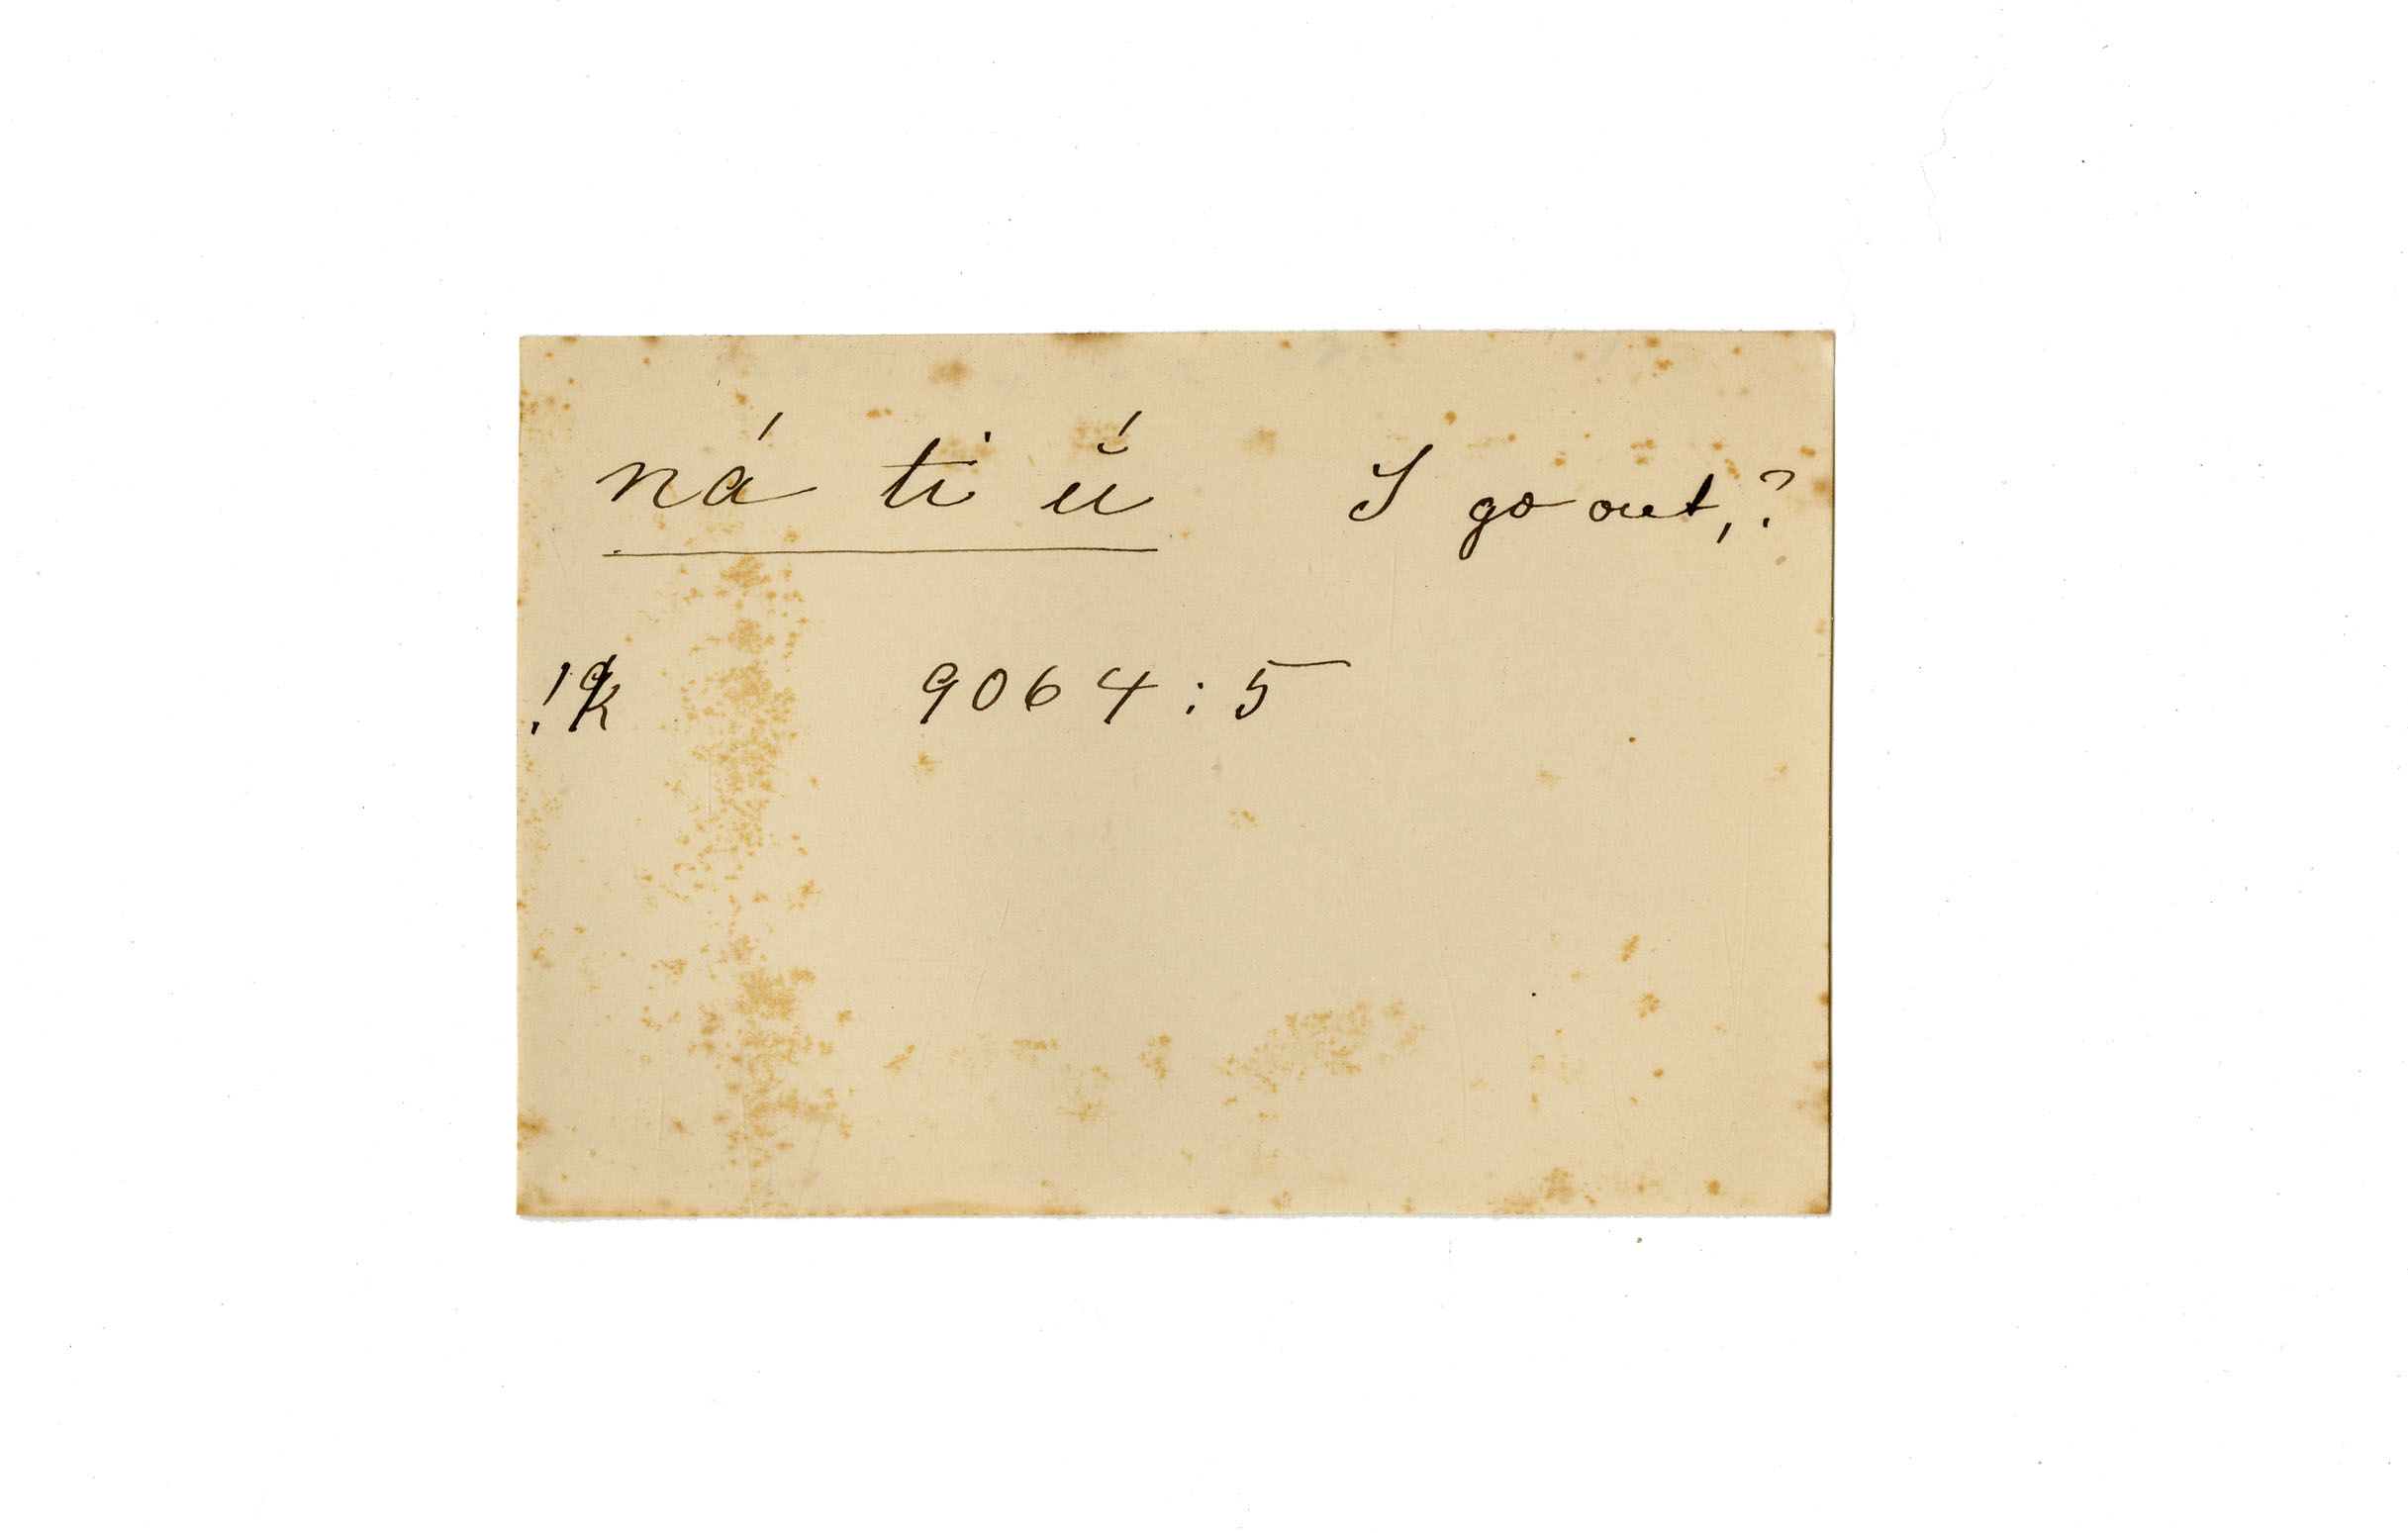 ná ti ŭ́ I go out,?
!k 9064:5